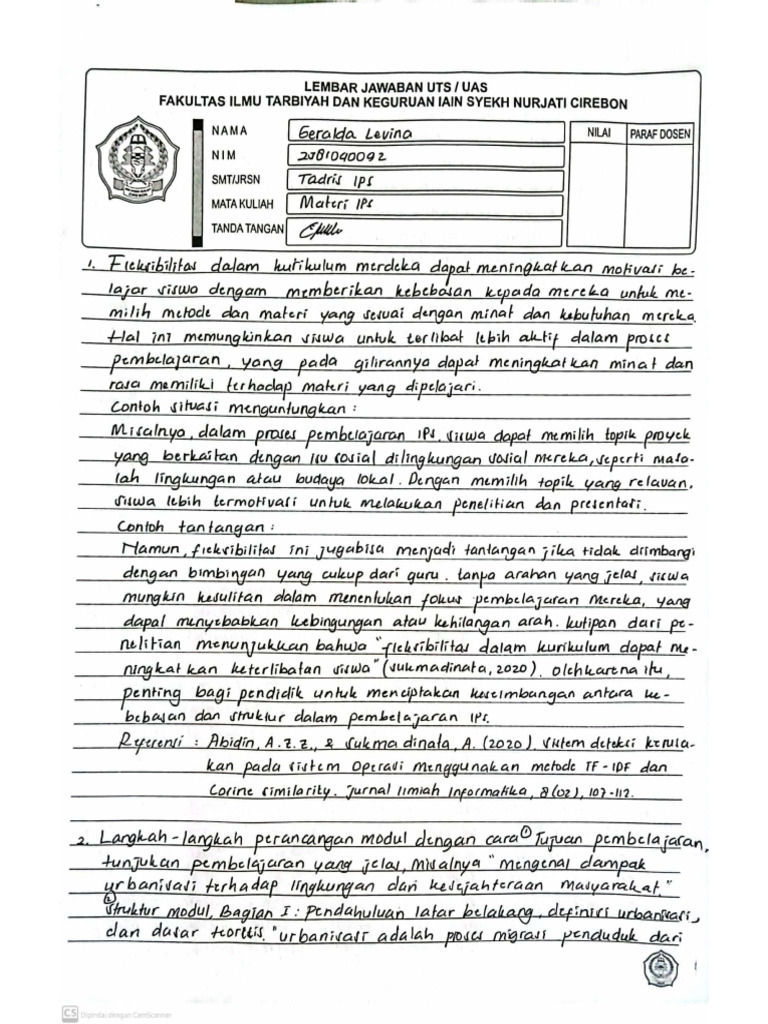 LEMBAR JAWABAN UTS / UAS
FAKULTAS ILMU TARBIYAH DAN KEGURUAN IAIN SYEKH NURJATI CIREBON
NAMA Geralda Levina
NIM 2381090092
SMT/JRSN Tadris IPS
MATA KULIAH Materi IPS
TANDA TANGAN
NILAI PARAF DOSEN
1. Fleksibilitas dalam kurikulum merdeka dapat meningkatkan motivasi be-
lajar siswa dengam memberikan kebebasan kepada mereka untuk me-
milih metode dan materi yang sesuai dengan minat dan kebutuhan mereka.
Hal ini memungkinkan siswa untuk terlibat lebih aktif dalam proses
pembelajaran, yang pada gilirannya dapat meningkatkan minat dan
rasa memiliki terhadap materi yang dipelajari.
Contoh situasi menguntungkan :
Misalnya, dalam proses pembelajaran IPS, siswa dapat memilih topik proyek
yang berkaitan dengan isu sosial dilingkungan sosial mereka, seperti masa-
lah lingkungan atau budaya lokal. Dengan memilih topik yang relavan,
siswa lebih termotivasi untuk melakukan penelitian dan presentasi.
Contoh tantangan :
Namun, fleksibilitas ini jugabisa menjadi tantangan jika tidak diimbangi
dengan bimbingan yang cukup dari guru. tanpa arahan yang jelas, siswa
mungkin kesulitan dalam menentukan fokus pembelajaran mereka, yang
dapat menyebabkan kebingungan atau kehilangan arah. kutipan dari pe-
nelitian menunjukkan bahwa "fleksibilitas dalam kurikulum dapat me-
ningkatkan keterlibatan siswa" (sukmadinata, 2020). olehkarena itu,
penting bagi pendidik untuk menciptakan keseimbangan antara ke-
bebasan dan struktur dalam pembelajaran IPS.
Referensi : Abidin, A.Z.Z., & sukmadinata, A. (2020). sistem deteksi kerusa-
kan pada sistem operasi menggunakan metode TF-IDF dan
Cosine similarity. Jurnal Ilmiah Informatika, 8(02), 107-112.
2. Langkah-langkah perancangan modul dengan cara ① Tujuan pembelajaran,
tunjukan pembelajaran yang jelas, Misalnya "mengenal dampak
urbanisasi terhadap lingkungan dan kesejahteraan masyarakat."
② Struktur modul, Bagian I : pendahuluan latar belakang, definisi urbanisasi,
dan dasar teoritis. "urbanisasi adalah proses migrasi penduduk dari
CS Dipindai dengan CamScanner